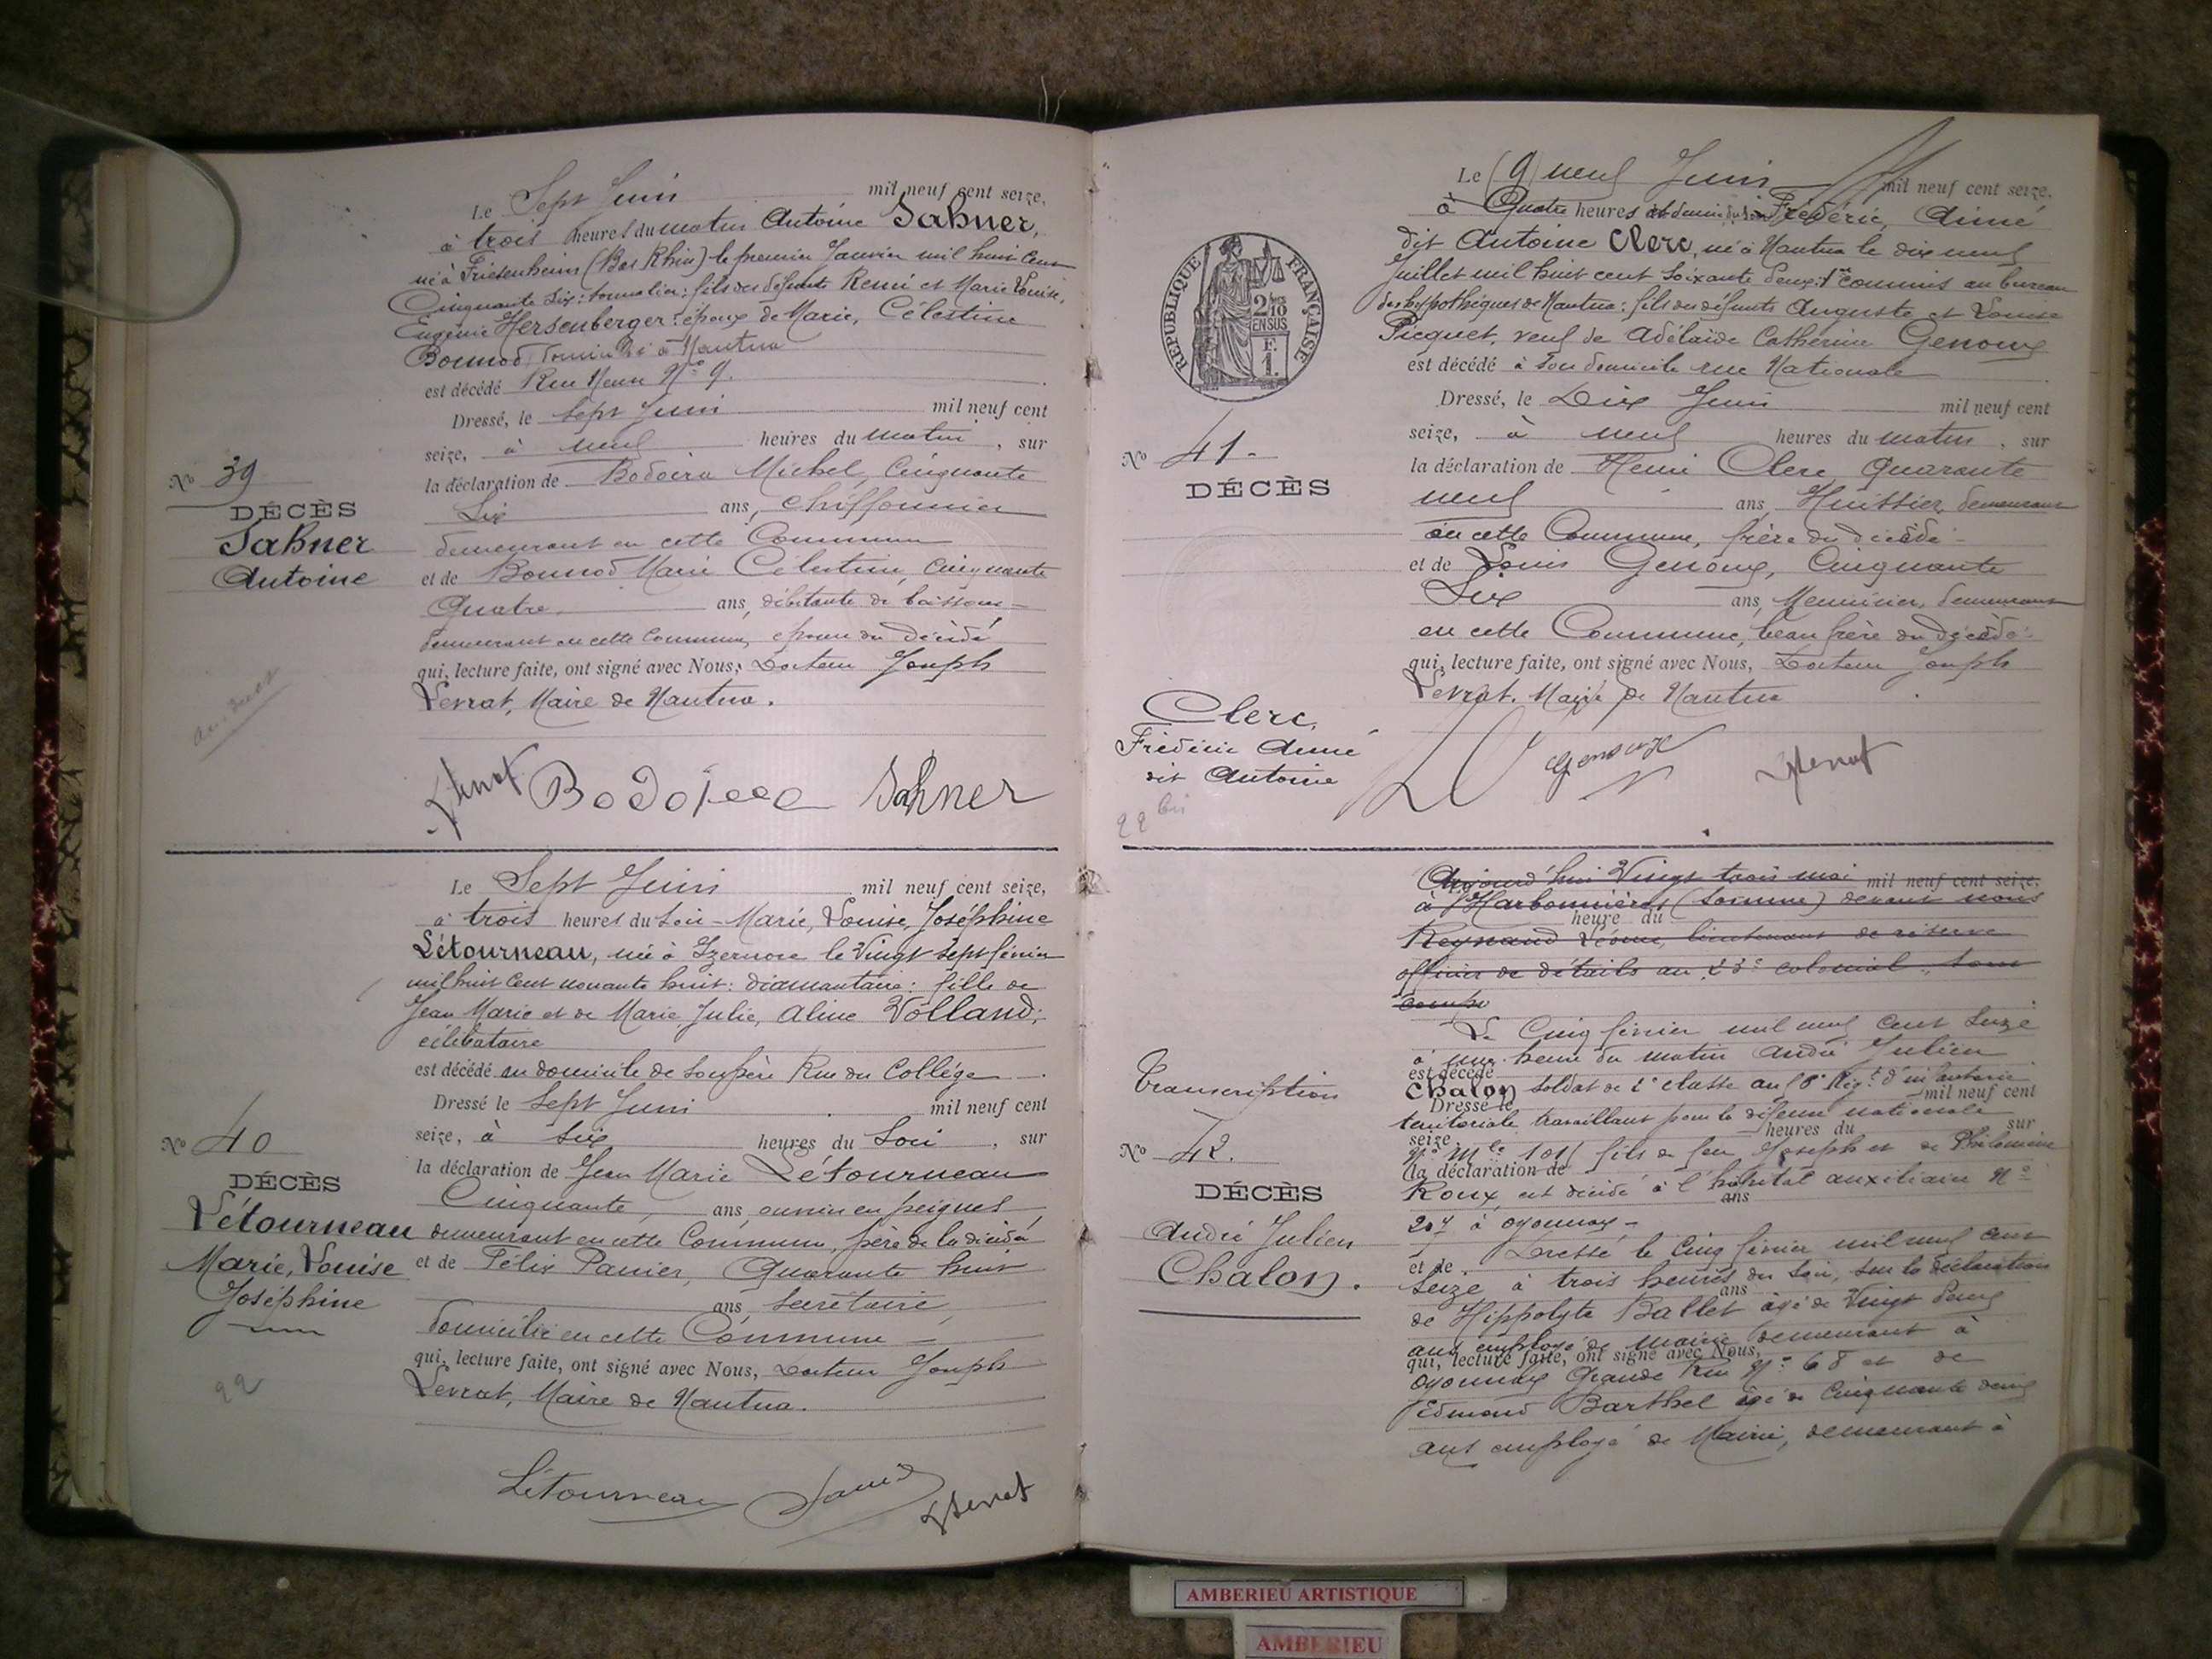 Le Sept Juin mil neuf cent seize,
à trois heures du matin Antoine Sahner,
né à Friesenheim (Bas Rhin) le premier Janvier mil huit cent
Cinquante six: tonnelier: fils des défunts Remi et Marie Louise,
Eugénie Hersenberger: époux de Marie, Célestine
Bonnod domicilié à Nantua
est décédé Rue Neuve No 9.
Dressé, le Sept Juin mil neuf cent
seize, à neuf heures du matin, sur
la déclaration de Michel, Cinquante
Six ans, chiffonnier
demeurant en cette Commune
et de Bonnod Marie Célestine, Cinquante
Quatre ans, débitante de boissons
demeurant en cette Commune, épouse du décédé
qui, lecture faite, ont signé avec Nous, Docteur Joseph
Levrat, Maire de Nantua.
No 39
DÉCÈS
Sahner
Antoine
Sahner
Le Sept Juin mil neuf cent seize,
à trois heures du Soir Marie, Louise, Joséphine
Létourneau, née à Izernore le Vingt sept février
mil huit cent nonante huit: diamantaire: fille de
Jean Marie et de Marie, Julie, Aline Volland;
célibataire
est décédé au domicile de son père Rue du Collège
Dressé le Sept Juin mil neuf cent
seize, à six heures du Soir, sur
la déclaration de Jean Marie Létourneau
Cinquante ans, ouvrier en peignes,
demeurant en cette Commune, père de la décédé
et de Félix Panier, Quarante huit
ans, secrétaire,
domicilié en cette Commune
qui, lecture faite, ont signé avec Nous, Docteur Joseph
Levrat, Maire de Nantua.
No 40
DÉCÈS
Létourneau
Marie, Louise
Joséphine
22
Létourneau Levrat
Le (9) neuf Juin mil neuf cent seize.
à Quatre heures et demie du soir Frédéric, Aimé
dit Antoine Clerc, né à Nantua le dix neuf
Juillet mil huit cent soixante deux: commis au bureau
des hypothèques de Nantua: fils des défunts Auguste et Louise
Picquet, veuf de Adélaïde Catherine Genoux
est décédé à son domicile rue Nationale
Dressé, le Dix Juin mil neuf cent
seize, à neuf heures du matin, sur
la déclaration de Henri Clerc, Quarante
neuf ans, Huissier, demeurant
en cette Commune, frère du décédé
et de Louis Genoux, Cinquante
Six ans, Menuisier, demeurant
en cette Commune, beau frère du décédé
qui, lecture faite, ont signé avec Nous, Docteur Joseph
Levrat. Maire de Nantua
RÉPUBLIQUE FRANÇAISE
2/10 EN SUS
F. 1.
No 41
DÉCÈS
Clerc,
Frédéric Aimé
dit Antoine
22 bis
Genoux Levrat
Aujourd'hui Vingt trois mai mil neuf cent seize.
à Harbonnières (Somme) devant nous
heure du
Reynaud lieutenant de réserve
officier de détails au 23e colonial
Le Cinq février mil neuf cent seize
à une heure du matin André Julien
est décédé
Chalon soldat de 2e classe au Régt d'infanterie
Dressé le mil neuf cent
territoriale travaillant pour la défense nationale
seize, heures du sur
fils de feu Joseph et de Philomène
la déclaration de
Roux, est décédé à l'hôpital auxiliaire No
ans
207 à Oyonnax
Dressé le Cinq février mil neuf cent
et de
seize à trois heures du soir, sur la déclaration
ans
de Hippolyte Ballet âgé de Vingt deux
ans employé de mairie demeurant à
qui, lecture faite, ont signé avec Nous,
Oyonnax Grande Rue No 68 et de
Edmond Barthel âgé de Cinquante deux
ans employé de Mairie, demeurant à
Transcription
No 42.
DÉCÈS
André Julien
Chalon.
AMBERIEU ARTISTIQUE
AMBERIEU